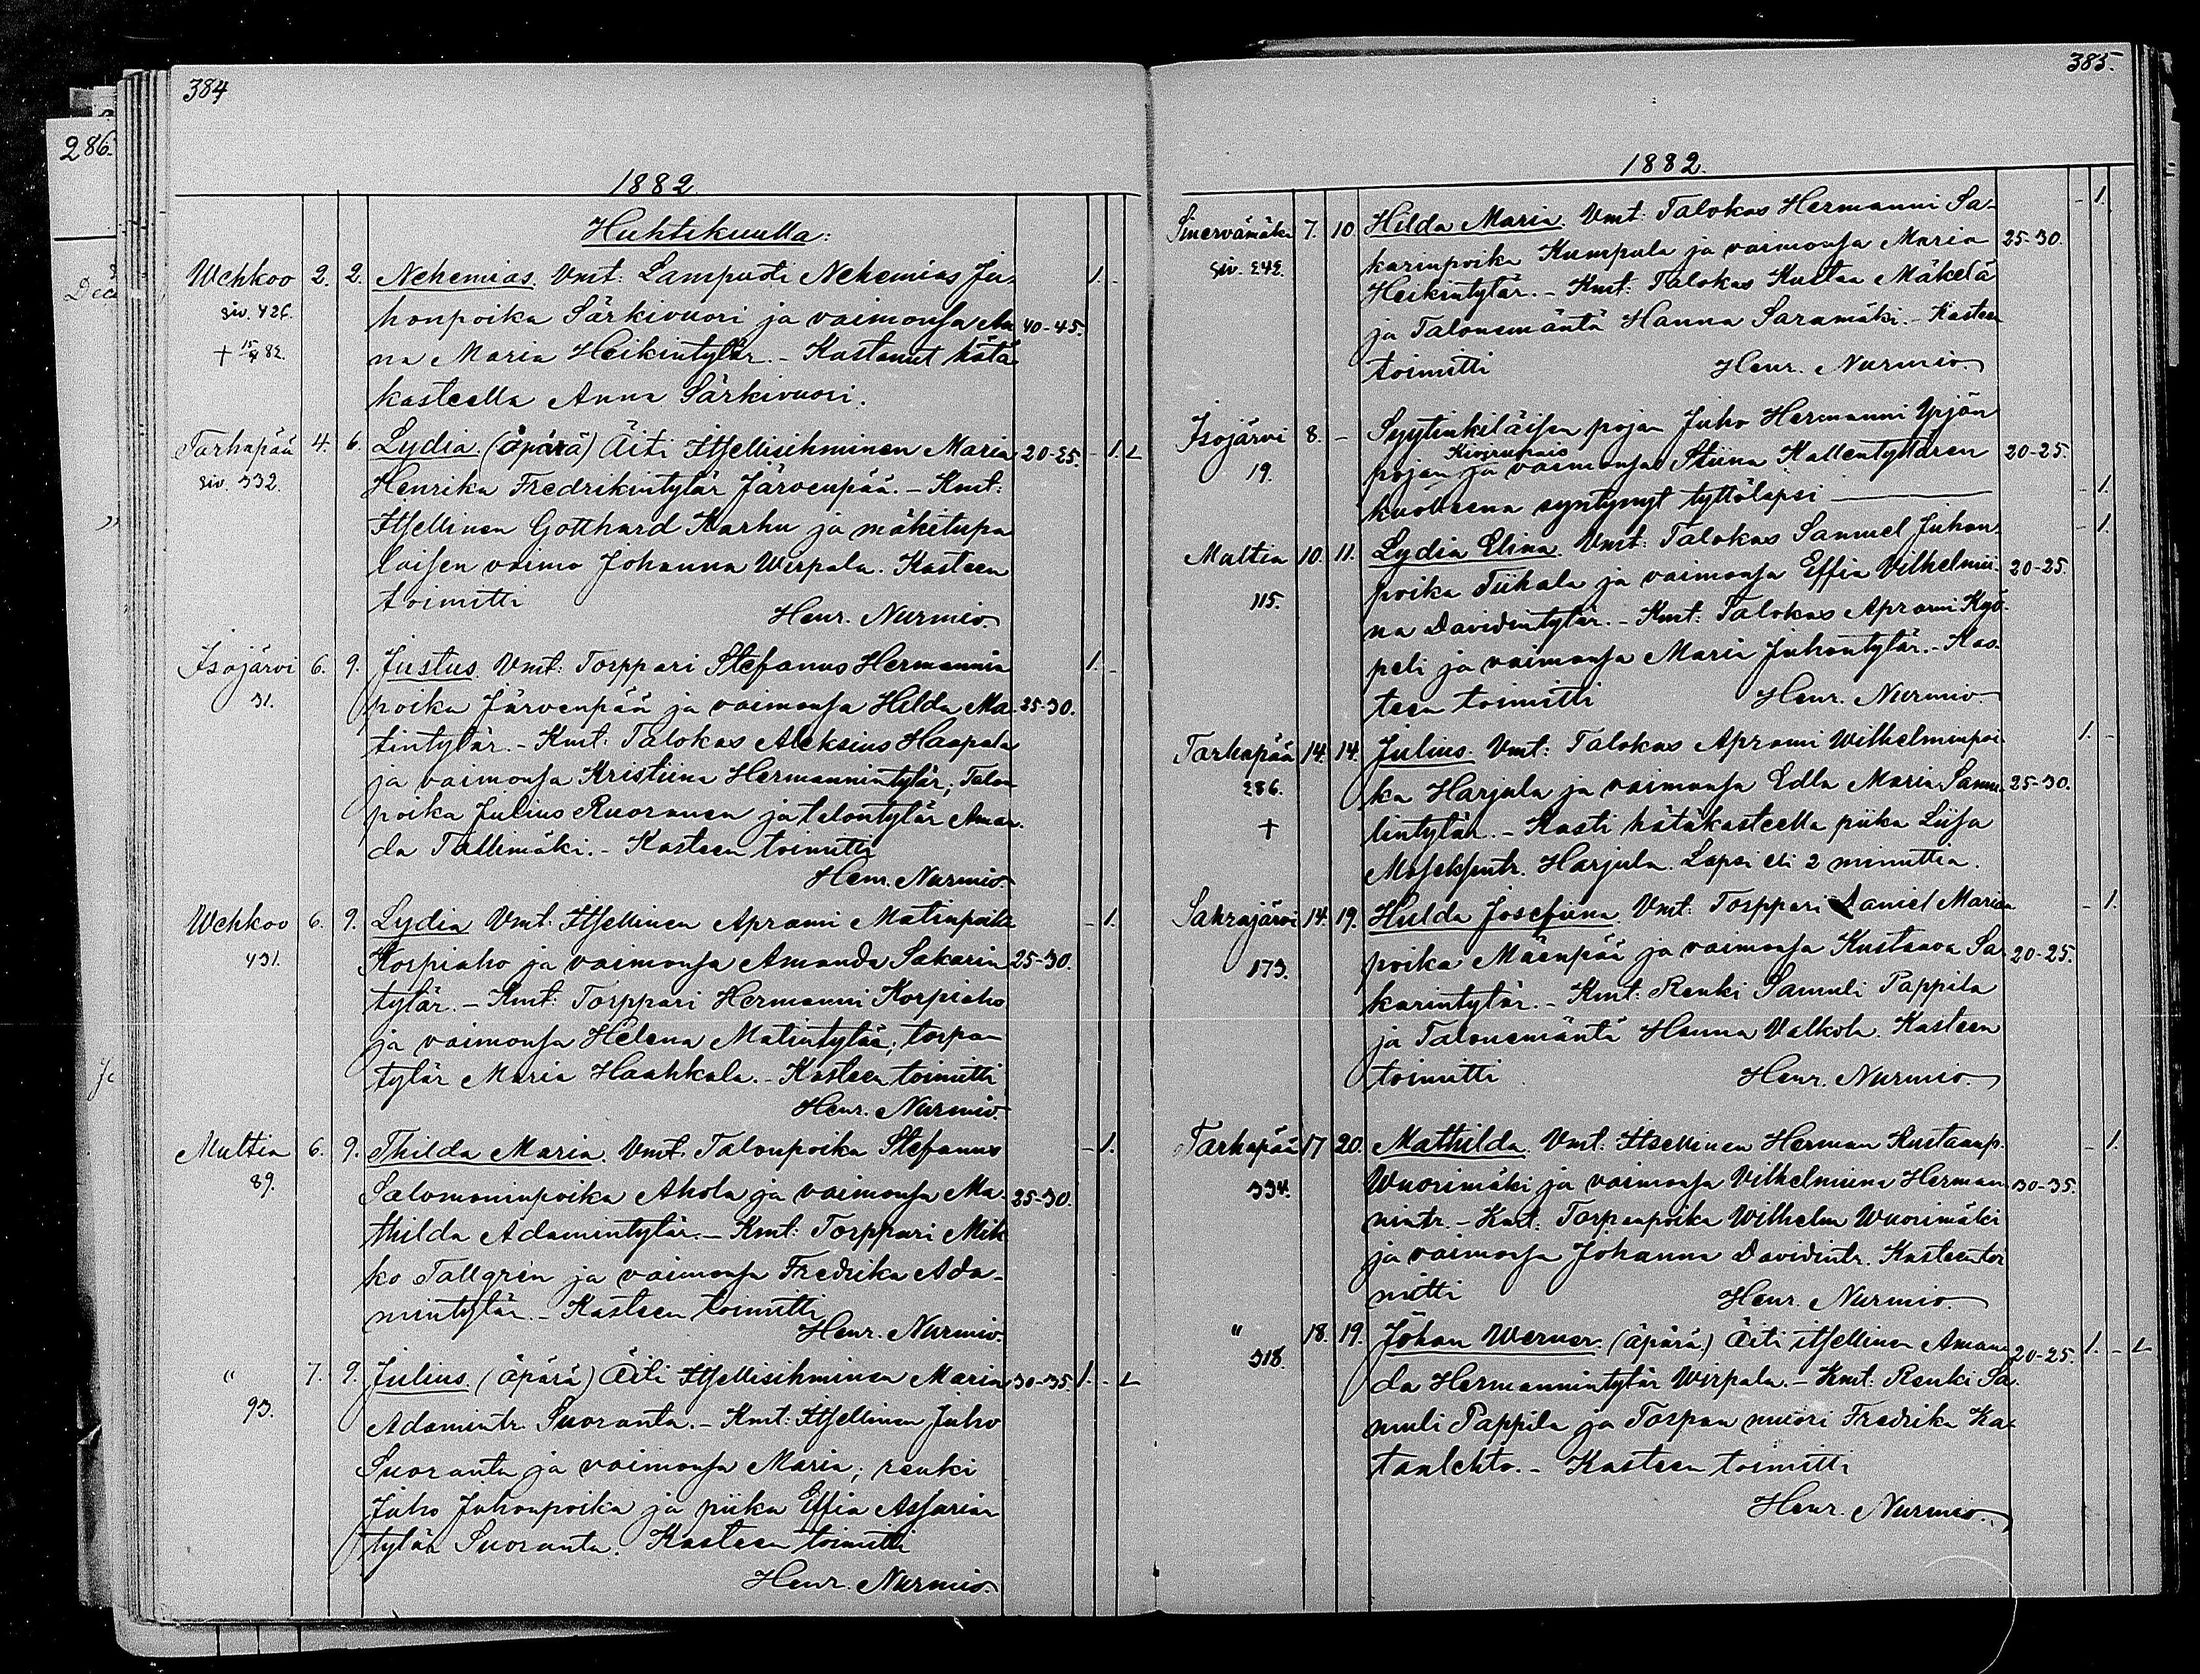 384
286.
Dec
1882.
Huhtikuulla:
Wehkoo 2. 2. Nehemias. Vmt: Lampuoti Nehemias Ju- 1. -
siv. 426. honpoika Särkivuori ja vaimonsa An 40-45.
+ 82. na Maria Heikintytär. - Kastanut hätä
kasteella Anna Särkivuori.
Tarhapää 4. 6. Lydia. (äpärä) Äiti Itsellisihminen Maria 20-25. - 1. L
siv. 332. Henrika Fredrikintytär Järvenpää. - Kmt:
Itsellinen Gotthard Karhu ja mäkitupa
laisen vaimo Johanna Wirpala. Kasteen
toimitti
Henr. Nurmio.
Isojärvi 6. 9. Justus. Vmt: Torppari Stefanus Hermannin 1. -
31. poika Järvenpää ja vaimonsa Hilda Ma 25-30.
tintytär. - Kmt. Talokas Aleksius Haapala
ja vaimonsa Kristiina Hermannintytär, Talon
poika Julius Ruoranen ja talontytär Aman
da Tallimäki. - Kasteen toimitti
Henr. Nurmio.
Wehkoo 6. 9. Lydia Vmt. Itsellinen Aprami Matinpoika - 1.
431. Korpiaho ja vaimonsa Amanda Sakarin 25-30.
tytär. - Kmt: Torppari Hermanni Korpiaho
ja vaimonsa Helena Matintytär; torpan
tytär Maria Haahkala. - Kasteen toimitti
Henr. Nurmio.
Multia 6. 9. Thilda Maria. Vmt. Talonpoika Stefanus - 1.
89. Salomoninpoika Ahola ja vaimonsa Ma- 25-30.
thilda Adamintytär. - Kmt: Torppari Mik
ko Tallgren ja vaimonsa Fredrika Ada-
mintytär. - Kasteen toimitti
Henr. Nurmio.
" 7. 9. Julius. (äpärä) Äiti Itsellisihminen Maria 30-35. 1. - L
93. Adamintr. Suoranta. - Kmt: Itsellinen Juho
Suoranta ja vaimonsa Maria; renki
Juho Juhonpoika ja piika Effia Assarian
tytär Suoranta. Kasteen toimitti
Henr. Nurmio.
385.
1882.
Sinervämäki 7. 10. Hilda Maria. Vmt: Talokas Hermanni Sa- - 1.
siv. 242. karinpoika Kumpula ja vaimonsa Maria 25-30.
Heikintytär. - Kmt: Talokas Kustaa Mäkelä
ja Talonemäntä Hanna Saramäki. - Kasteen
toimitti Henr. Nurmio.
Isojärvi 8. - Syytinkiläisen pojan Juho Hermanni Yrjön
19. pojan Kivirannis ja vaimonsa Stiina Kallentyttären 20-25.
kuolleena syntynyt tyttölapsi - 1.
Multia 10. 11. Lydia Elina. Vmt: Talokas Samuel Juhon- - 1.
115. poika Tiihala ja vaimonsa Effia Vilhelmii- 20-25.
na Davidintytär. - Kmt: Talokas Aprami Kyö-
peli ja vaimonsa Maria Juhontytär. - Kas-
teen toimitti Henr. Nurmio.
Tarhapää 14. 14. Julius. Vmt: Talokas Aprami Wilhelminpoi- 1. -
286. ka Harjula ja vaimonsa Edla Maria Samu 25-30.
+ lintytär. - Kasti hätäkasteella piika Liisa
Moseksentr. Harjula. Lapsi eli 2 minuttia.
Sahrajärvi 14. 19. Hulda Josefiina Vmt: Torppari Daniel Marian - 1.
173. poika Mäenpää ja vaimonsa Kustaava Sa 20-25.
karintytär. - Kmt: Renki Samuli Pappila
ja Talonemäntä Hanna Valkola. Kasteen
toimitti Henr. Nurmio.
Tarhapää 17 20. Mathilda. Vmt: Itsellinen Herman Kustaanp. - 1.
334. Wuorimäki ja vaimonsa Vilhelmiina Herman 30-35.
nintr. - Kmt. Torpanpoika Wilhelm Wuorimäki
ja vaimonsa Johanna Davidintr. Kasteen toi
mitti Henr. Nurmio.
" 18. 19. Johan Werner. (äpärä) Äiti itsellinen Aman 20-25. 1. - L
318. da Hermannintytär Wirpala. - Kmt: Renki Sa
muli Pappila ja Torpan muori Fredrika Ka-
taalehto. - Kasteen toimitti
Henr. Nurmio.